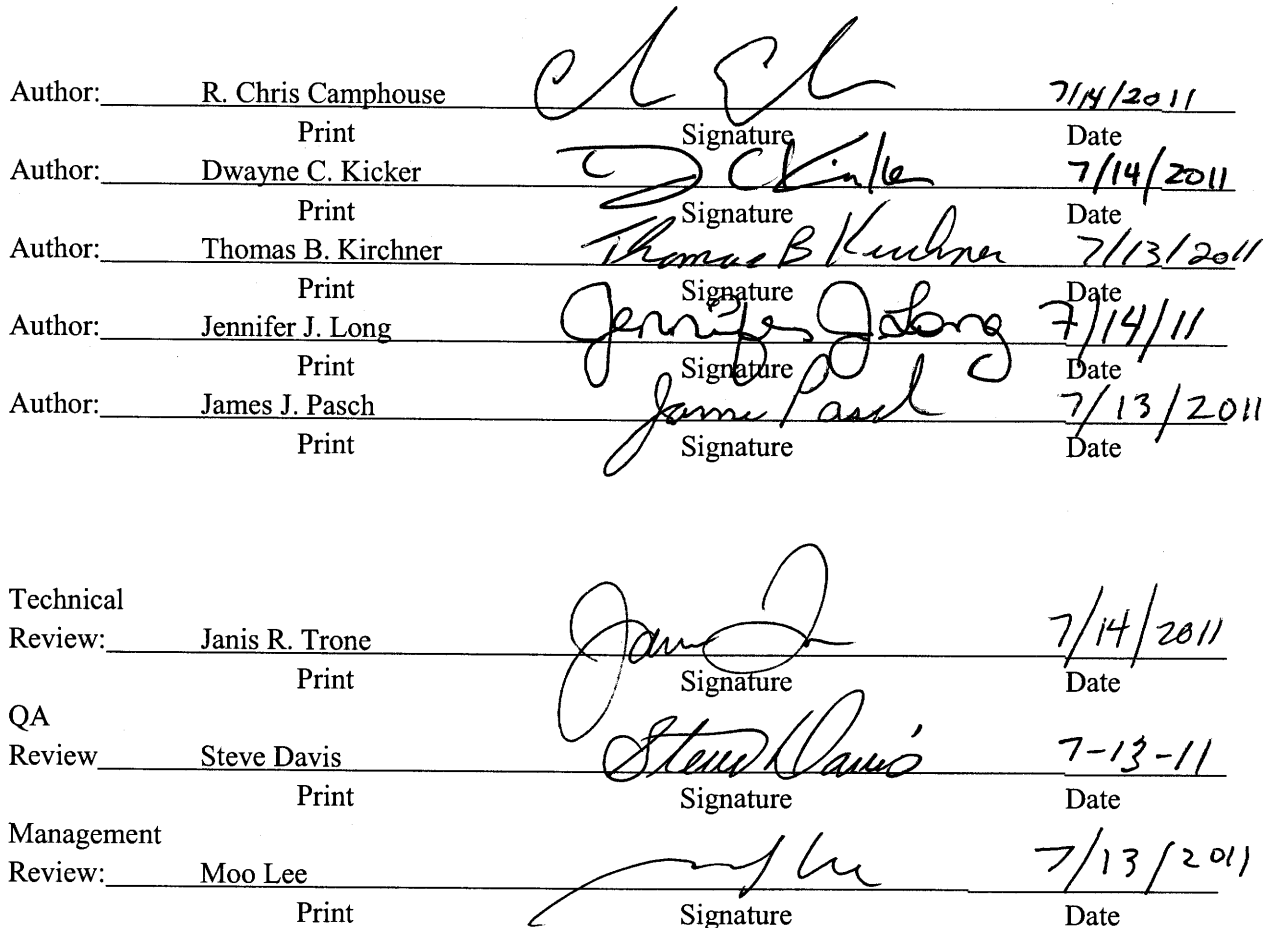 Author: R. Chris Camphouse 7/14/2011
Print Signature Date
Author: Dwayne C. Kicker D C Kicker 7/14/2011
Print Signature Date
Author: Thomas B. Kirchner Thomas B Kirchner 7/13/2011
Print Signature Date
Author: Jennifer J. Long Jennifer J. Long 7/14/11
Print Signature Date
Author: James J. Pasch James Pasch 7/13/2011
Print Signature Date
Technical
Review: Janis R. Trone 7/14/2011
Print Signature Date
QA
Review Steve Davis Steve Davis 7-13-11
Print Signature Date
Management
Review: Moo Lee 7/13/2011
Print Signature Date